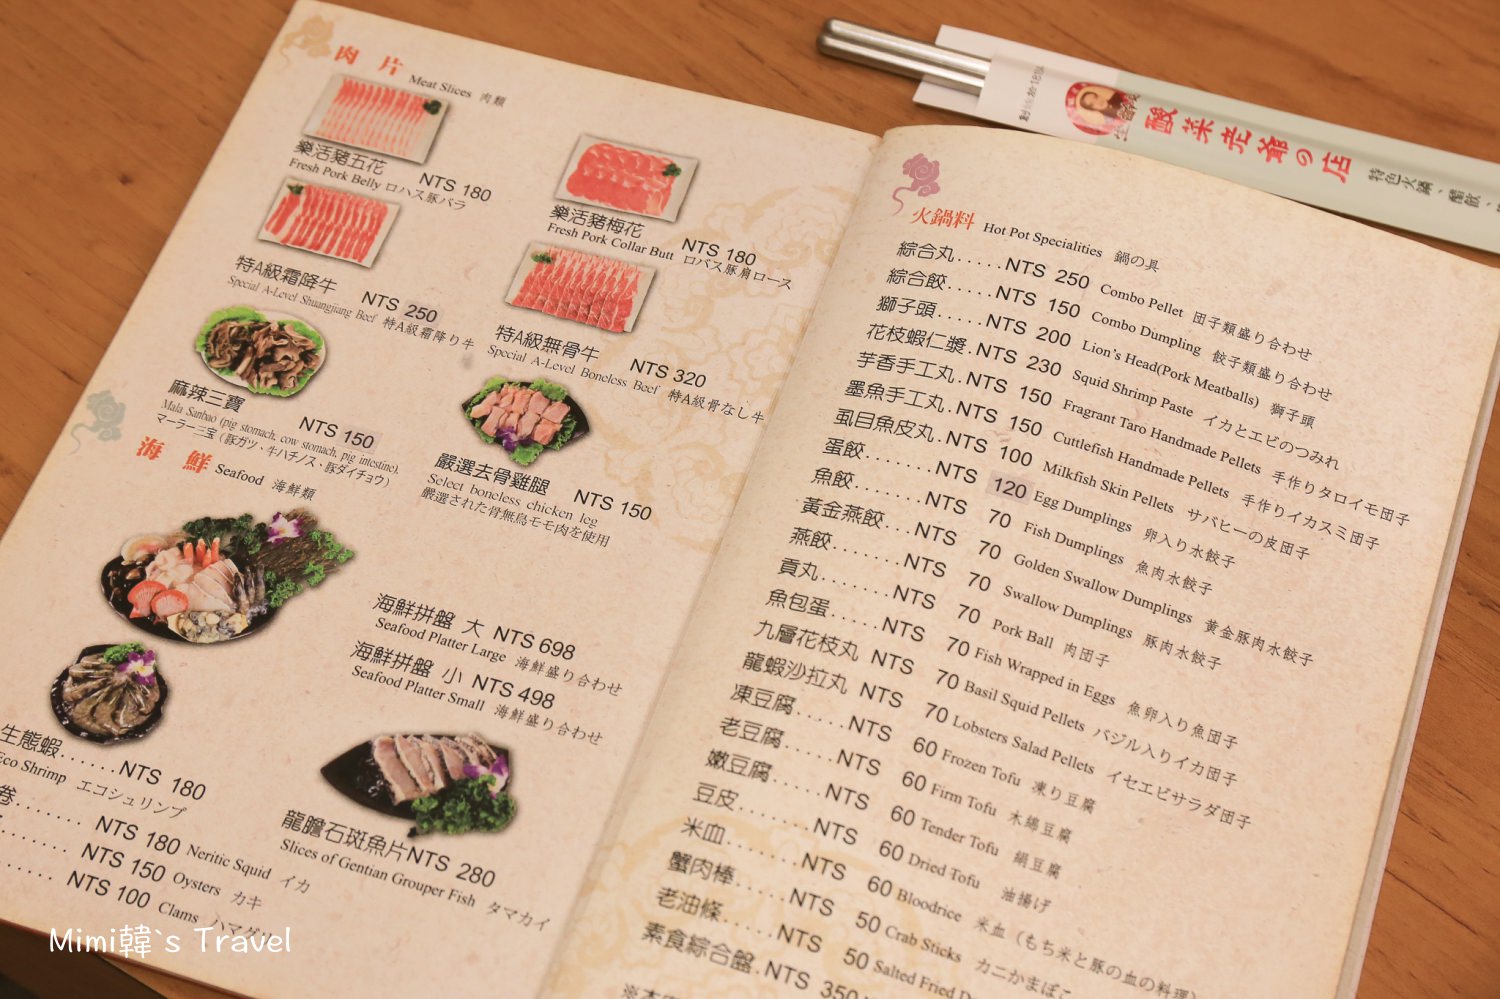 肉 片 Meat Slices 肉類
樂活豬五花 NTS 180
Fresh Pork Belly ロハス豚バラ
樂活豬梅花 NTS 180
Fresh Pork Collar Butt ロバス豚肩ロース
特A級霜降牛 NTS 250
Special A-Level Shuangjiang Beef 特A級霜降り牛
特A級無骨牛 NTS 320
Special A-Level Boneless Beef 特A級骨なし牛
麻辣三寶 NTS 150
Mala Sanbao (pig stomach, cow stomach, pig intestine).
マーラー三宝(豚ガツ・牛ハチノス・豚ダイチョウ)
嚴選去骨雞腿 NTS 150
Select boneless chicken leg
嚴選された骨無鳥モモ肉を使用
海 鮮 Seafood 海鮮類
海鮮拼盤 大 NTS 698
Seafood Platter Large 海鮮盛り合わせ
海鮮拼盤 小 NTS 498
Seafood Platter Small 海鮮盛り合わせ
生態蝦......NTS 180
Eco Shrimp エコシュリンプ
卷........NTS 180 Neritic Squid イカ
NTS 150 Oysters カキ
NTS 100 Clams ハマグリ
龍膽石斑魚片NTS 280
Slices of Gentian Grouper Fish タマカイ
火鍋料 Hot Pot Specialities 鍋の具
綜合丸.....NTS 250 Combo Pellet 団子類盛り合わせ
綜合餃.....NTS 150 Combo Dumpling 餃子類盛り合わせ
獅子頭.....NTS 200 Lion's Head(Pork Meatballs) 獅子頭
花枝蝦仁漿.NTS 230 Squid Shrimp Paste イカとエビのつみれ
芋香手工丸.NTS 150 Fragrant Taro Handmade Pellets 手作りタロイモ団子
墨魚手工丸.NTS 150 Cuttlefish Handmade Pellets 手作りイカスミ団子
虱目魚皮丸.NTS 100 Milkfish Skin Pellets サバヒーの皮団子
蛋餃.......NTS 120 Egg Dumplings 卵入り水餃子
魚餃.......NTS 70 Fish Dumplings 魚肉水餃子
黃金燕餃...NTS 70 Golden Swallow Dumplings 黄金豚肉水餃子
燕餃.......NTS 70 Swallow Dumplings 豚肉水餃子
貢丸.......NTS 70 Pork Ball 肉団子
魚包蛋.....NTS 70 Fish Wrapped in Eggs 魚卵入り魚団子
九層花枝丸 NTS 70 Basil Squid Pellets バジル入りイカ団子
龍蝦沙拉丸 NTS 70 Lobsters Salad Pellets イセエビサラダ団子
凍豆腐.....NTS 60 Frozen Tofu 凍り豆腐
老豆腐.....NTS 60 Firm Tofu 木綿豆腐
嫩豆腐.....NTS 60 Tender Tofu 絹豆腐
豆皮.......NTS 60 Dried Tofu 油揚げ
米血.......NTS 60 Bloodrice 米血(もち米と豚の血の料理)
蟹肉棒.....NTS 50 Crab Sticks カニかまぼこ
老油條.....NTS 50 Salted Fried
素食綜合盤.NTS 350
酸菜老爺の店
特色火鍋、
Mimi韓`s Travel